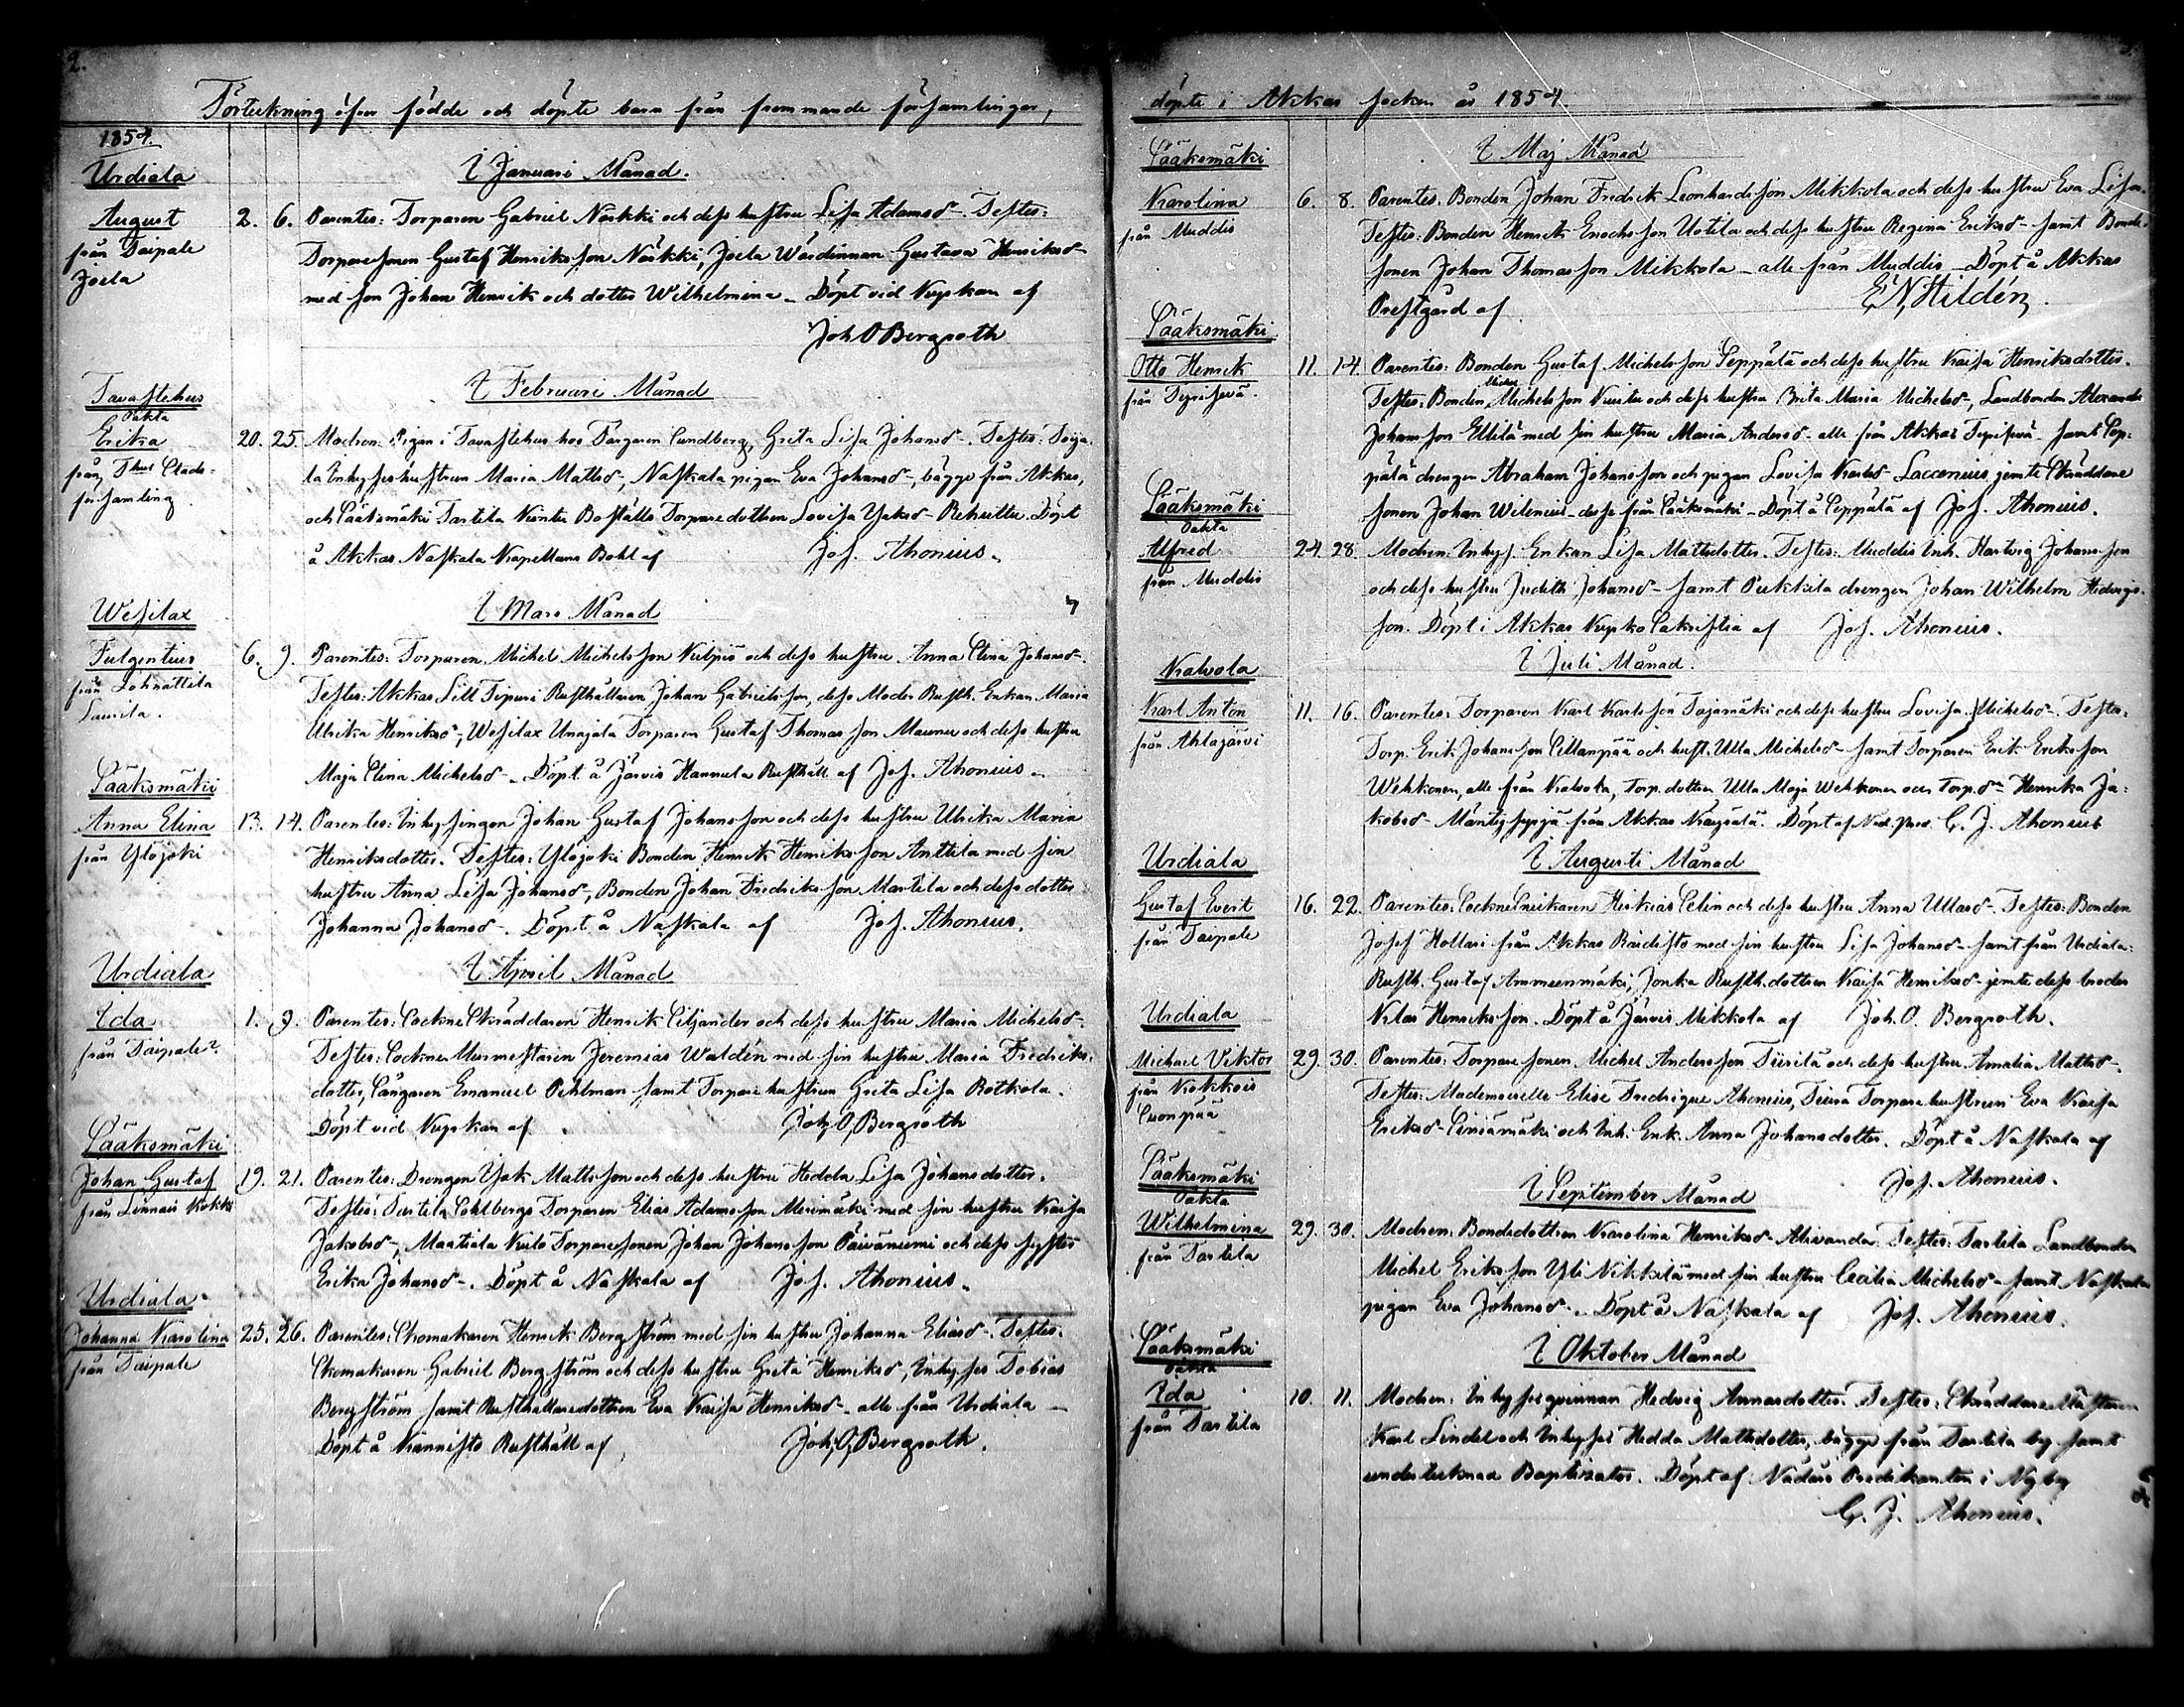 2.
Förteckning öfver födde och döpte barn från frammande församlingar,
1854.
Urdiala
I Januari Månad.
August 2. 6. Parentes: Torparen Gabriel Närkki och dess hustru Lisa Adamsd-. Testes:
från Taipale Torparesonen Gustaf Henriksson Närkki, Joela Wärdinnan Gustava Henriksd-
Joela med son Johan Henrik och dotter Wilhelmina - Döpt vid Kyrkan af
Joh O Bergroth
Tavastehus
I Februari Månad
Oäkta
Erika 20. 25. Modren: Pigan i Tavastehus hos Färgaren Sundberg, Greta Lisa Johansd-. Testes:
från Thus Stads- la Inhyseshustrun Maria Mattsd-, Naskala pigan Eva Johansd-, bägge från Akkas,
församling och Sääksmäki Tarttila Boställs Torparedottren Lovisa Isaksd- Döpt
å Akkas Naskala Kapellans Bohl af Jos. Ahonius.
Wesilax
I Mars Månad
Fulgentius 6. 9. Parentes: Torparen Michel Michelsson Kulpio och dess hustru Anna Stina Johansd-.
från Lohnattila Testes: Akkas Lill Sipuri Rusthållaren Johan Gabrielsson, dess Moder Rusth. Enkan Maria
Laurila. Ulrika Henriksd-, Wesilax Unajala Torparen Gustaf Thomasson Maunu och dess hustru
Maja Stina Michelsd-. Döpt å Järvis Hannula Rusthåll af Jos. Ahonius.
Sääksmäki
Anna Elina 13. 14. Parentes: Inhysingen Johan Gustaf Johansson och dess hustru Ulrika Maria
från Ylöjoki Henriksdotter. Testes: Ylöjoki Bonden Henrik Henriksson Anttila med sin
hustru Anna Lisa Johansd-, Bonden Johan Fredriksson Marttila och dess dotter
Johanna Johansd-. Döpt å Naskala af Jos. Ahonius.
Urdiala
I April Månad
Ida 1. 9. Parentes: Sockne Skräddaren Henrik Siljander och dess hustru Maria Michelsd-.
från Taipale. Testes: Sockne Murmestaren Jeremias Waldén med sin hustru Maria Fredriks-
dotter, Sångaren Emanuel Pihlman samt Torpare hustrun Greta Lisa Rotkola.
Döpt vid Kyrkan af Joh. O. Bergroth
Sääksmäki
Johan Gustaf 19. 21. Parentes: Drengen Isak Mattsson och dess hustru Hedda Lisa Johansdotter.
från Linnais Kokki Testes: Tarttila Sohlbergs Torparen Elias Adamsson Merimäki med sin hustru Kaisa
Jakobsd-, Maatiala Torparesonen Johan Johansson Päivänurmi och dess syster
Erika Johansd-. Döpt å Naskala af Jos. Ahonius.
Urdiala
Johanna Karolina 25. 26. Parentes: Skomakaren Henrik Bergström med sin hustru Johanna Eliasd-. Testes:
från Taipale Skomakaren Gabriel Bergström och dess hustru Greta Henriksd-, Inhyses Tobias
Bergström, samt Rusthållaredottren Eva Kaisa Henriksd-. alle från Urdiala -
Döpt å Kännistö Rusthåll af Joh. O. Bergroth.
döpte i Akkas socken år 1854.
Sääksmäki
I Maj Månad
Karolina 6. 8. Parentes: Bonden Johan Fredrik Leonhardsson Mikkola och dess hustru Eva Lisa.
från Muddis Testes: Bonden Henrik Enochsson Uotila och dess hustru Regina Eriksd- samt Bonde-
sonen Johan Thomasson Mikkola - alle från Muddis - Döpt å Akkas
Prestgård af E. N. Hildén.
Sääksmäki
Otto Henrik 11. 14. Parentes: Bonden Gustaf Michelsson Seppälä och dess hustru Kaisa Henriksdotter.
från Testes: Bonden Michelsson och dess hustru Brita Maria Michelsd-, Landbonden Alexander
Johansson Ellilä med sin hustru Maria Andersd- alle från Akkas samt Sep-
pälä drengen Abraham Johansson och pigan Lovisa Karlsd- Laccenius, jemte Skräddare
sonen Johan Wilenius - desse från Sääksmäki - Döpt å Seppälä af Jos. Ahonius.
Sääksmäki
Oäkta
Alfred 24. 28. Modren: Inhys. Enkan Lisa Mattsdotter. Testes: Muddis Inh. Hartvig Johansson
från Muddis och dess hustru Judith Johansd- samt Pukkila drengen Johan Wilhelm Hedvigs-
son. Döpt i Akkas Kyrko Sakristia af Jos. Ahonius.
Kalvola
I Juli Månad.
Karl Anton 11. 16. Parentes: Torparen Karl Karlsson Tajamäki och dess hustru Lovisa Michelsd-. Testes:
från Ahlajärvi Torp. Erik Johansson Sillanpää och hust. Ulla Michelsd- samt Torparen Erik Eriksson
Wehkonen, alle från Kalvola, Torp. dottren Ulla Maja Wehkonen och Torp.d- Henrika Ja-
kobsd- från Akkas Kärjälä. Döpt af Nåd. Pred. C. J. Ahonius
Urdiala
I Augusti Månad
Gustaf Evert 16. 22. Parentes: Sockne Snickaren Heikias Selin och dess hustru Anna Ullasd-. Testes: Bonden
från Taipale Josef Hollari från Akkas Rädistö med sin hustru Lisa Johansd- samt från Urdiala:
Rusth. Gustaf Ammeenmäki, Jonka Rusth.dottren Kaisa Henriksd- jemte dess broder
Klas Henriksson. Döpt å Järvis Mikkola af Joh. O. Bergroth.
Urdiala
Michael Viktor 29. 30. Parentes: Torparesonen Michel Andersson Tiirilä och dess hustru Amalia Mattsd-.
från Kokkois Testes: Mademoiselle Elise Fredrique Ahonius, Torparehustrun Eva Kaisa
Eriksd- Siniämäki och Inh. Enk. Anna Johansdotter. Döpt å Naskala af
Jos. Ahonius.
Sääksmäki
I September Månad
Oäkta
Wilhelmina 29. 30. Modren: Bondedottren Karolina Henriksd- Testes: Tarttila Landbonden
från Tarttila Michel Eriksson Yli Nikkilä med sin hustru Cecilia Michelsd- samt Naskala
pigan Eva Johansd-. Döpt å Naskala af Jos. Ahonius.
Sääksmäki
I Oktober Månad
Oäkta
Ida 10. 11. Modren: Inhysesqvinnan Hedvig Annasdotter. Testes: Skräddare Mästaren
från Tarttila Karl Lindel och Inhyses Hedda Mattsdotter, bägge från Tarttila by samt
undertecknad Baptizator. Döpt af Nådårs Predikanten i Nyby
C. J. Ahonius.